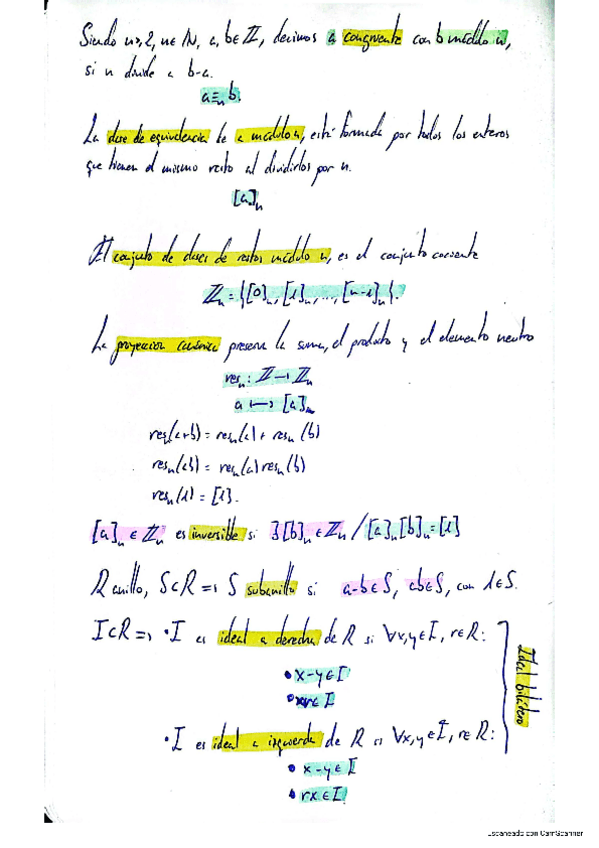 Siendo n≥2, n∈ℕ, a, b∈ℤ, decimos a congruente con b módulo n,
si n divide a b-a.
a≡ₙb.
La clase de equivalencia de a módulo n, está formada por todos los enteros
que tienen el mismo resto al dividirlos por n.
[a]ₙ
El conjunto de clases de restos módulo n, es el conjunto cociente
ℤₙ = {[0]ₙ, [1]ₙ, ..., [n-1]ₙ}.
La proyección canónica preserva la suma, el producto y el elemento neutro
resₙ: ℤ → ℤₙ
a ↦ [a]ₙ
resₙ(a+b) = resₙ(a) + resₙ(b)
resₙ(ab) = resₙ(a) resₙ(b)
resₙ(1) = [1].
[a]ₙ ∈ ℤₙ es inversible si ∃[b]ₙ∈ℤₙ / [a]ₙ[b]ₙ=[1]
R anillo, S⊂R ⇒ S subanillo si a-b∈S, ab∈S, con 1∈S.
I⊂R ⇒ • I es ideal a derecha de R si ∀x,y∈I, r∈R:
• x-y∈I
• xr∈I
Ideal bilátero
• I es ideal a izquierda de R si ∀x,y∈I, r∈R:
• x-y∈I
• rx∈I
Escaneado con CamScanner